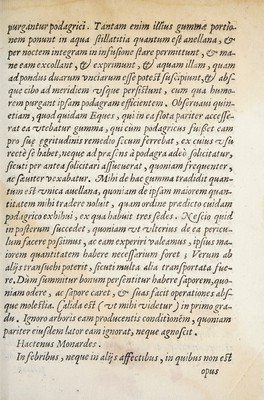 purgantur podagrici. Tantam enim illius gummæ portio-
nem ponunt in aqua stillatitia quantum est anellana, &
per noctem integram in infusione stare permittunt, & ma-
ne eam excollant, & exprimunt, & aquam illam, quam
ad pondus duarum vnciarum esse potest suscipiunt, & abs-
que cibo ad meridiem vsque persistunt, cum qua humo-
rem purgant ipsam podagram efficientem. Obseruaui quin-
etiam, quod quidam Eques, qui in ea flota pariter accesse-
rat ea vtebatur gumma, qui cum podagricus fuisset eam
pro suę egritudinis remedio secum ferrebat, ex cuius vsu
rectè se habet, neque ad præsens à podagra adeò solicitatur,
sicuti per antea solicitari assueuerat, quoniam frequenter,
ac sæuiter vexabatur. Mihi de hac gumma tradidit quan-
tum est vnica auellana, quoniam de ipsam maiorem quan-
titatem mihi tradere noluit, quam ordine prædicto cuidam
podagrico exhibui, ex qua habuit tres sedes. Nescio quid
in posterum succedet, quoniam vt vlterius de ea pericu-
lum facere possimus, ac eam experiri valeamus, ipsius ma-
iorem quantitatem habere necessarium foret; Verum ab
alijs transuehi poterit, sicuti multa alia transportata fue-
re. Dum summitur bonum persentitur habere saporem, quo-
niam odore, ac sapore caret, & suas facit operationes abs-
que molestia. Calida est (vt mihi videtur) in primo gra-
du. Ignoro arboris eam producentis conditionem, quoniam
pariter eiusdem lator eam ignorat, neque agnoscit.
Hactenus Monardes.
In febribus, neque in alijs affectibus, in quibus non est
opus